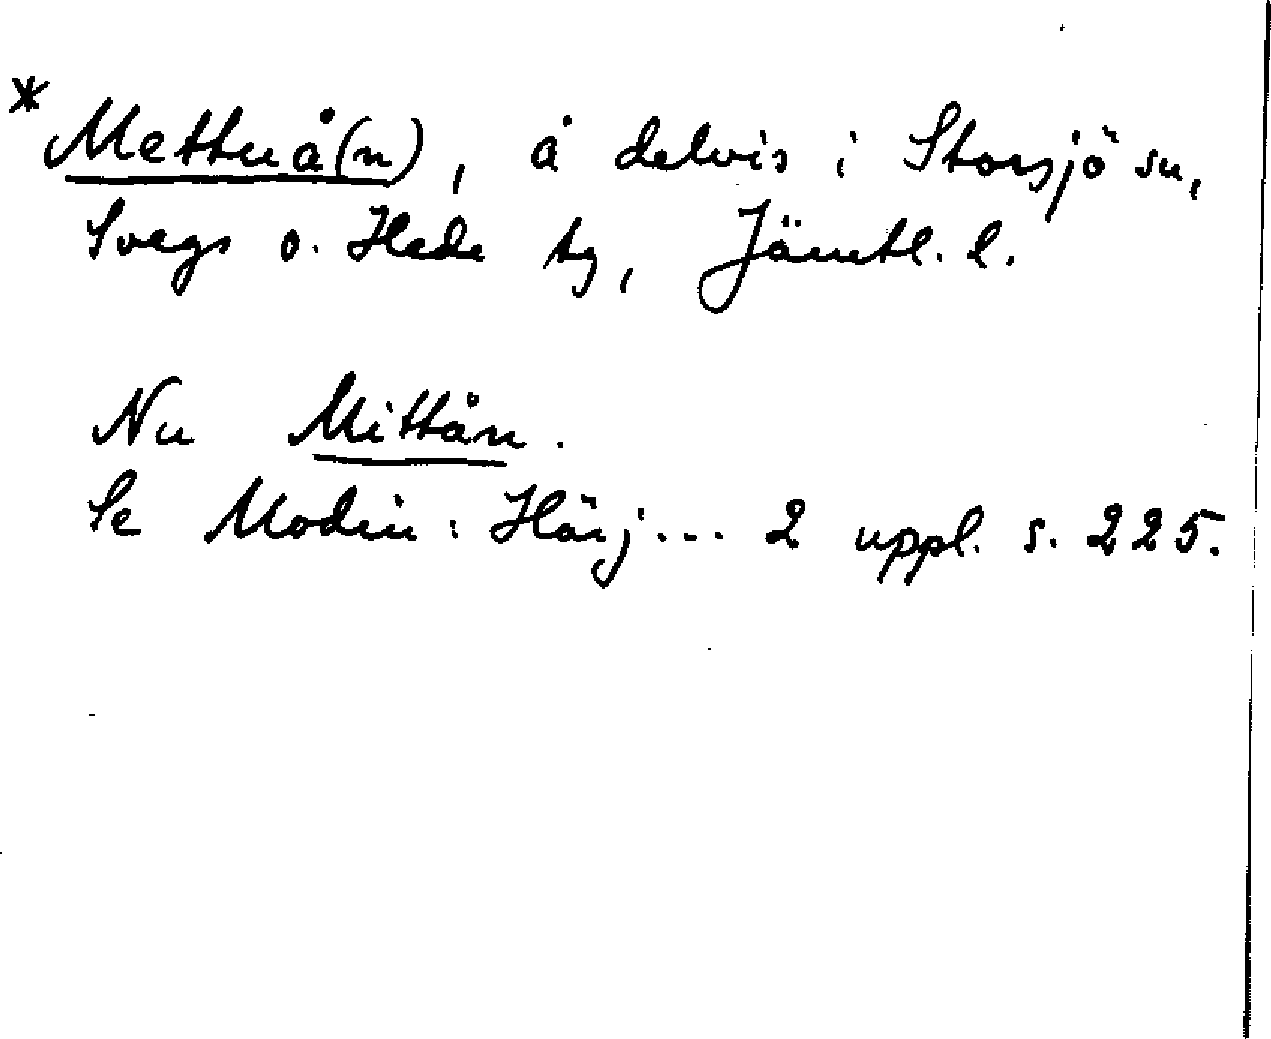 * Mettuå(n), å delvis i Storsjö sn,
Svegs o. Hede tg, Jämtl. l.
Nu Mittån.
Se Modin: Härj... 2 uppl. s. 225.